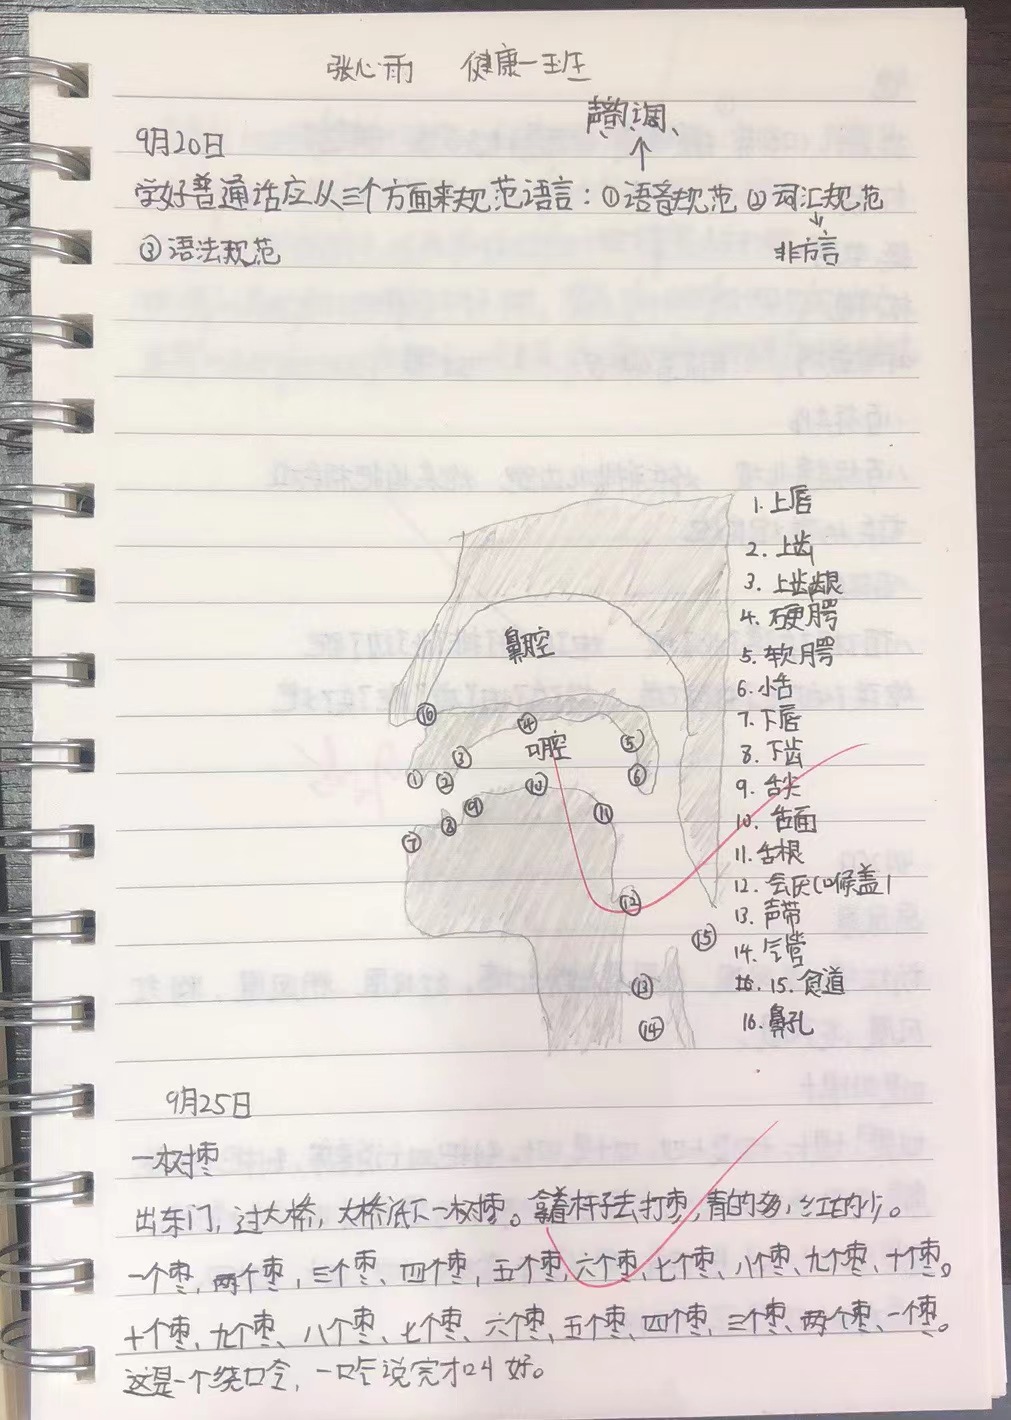 张心雨 健康一班
声韵调、
9月20日
学好普通话应从三个方面来规范语言：①语音规范 ②词汇规范
③语法规范
非方言
1. 上唇
2. 上齿
3. 上齿龈
4. 硬腭
5. 软腭
6. 小舌
7. 下唇
8. 下齿
9. 舌尖
10. 舌面
11. 舌根
12. 会厌(口候盖)
13. 声带
14. 气管
15. 食道
16. 鼻孔
鼻腔
口腔
⑯ ④
③ ⑤
① ② ⑩ ⑥
⑨ ⑪
⑦ ⑧
⑫
⑮
⑬
⑭
9月25日
一树枣
出东门，过大桥，大桥底下一树枣。拿着杆子去打枣，青的多，红的少。
一个枣，两个枣，三个枣、四个枣，五个枣，六个枣、七个枣、八个枣、九个枣、十个枣。
十个枣、九个枣、八个枣、七个枣、六个枣、五个枣、四个枣、三个枣、两个枣、一个枣。
这是一个绕口令，一口气说完才叫好。